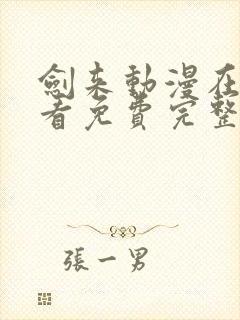 劍来動漫在
看免費完整
張一男